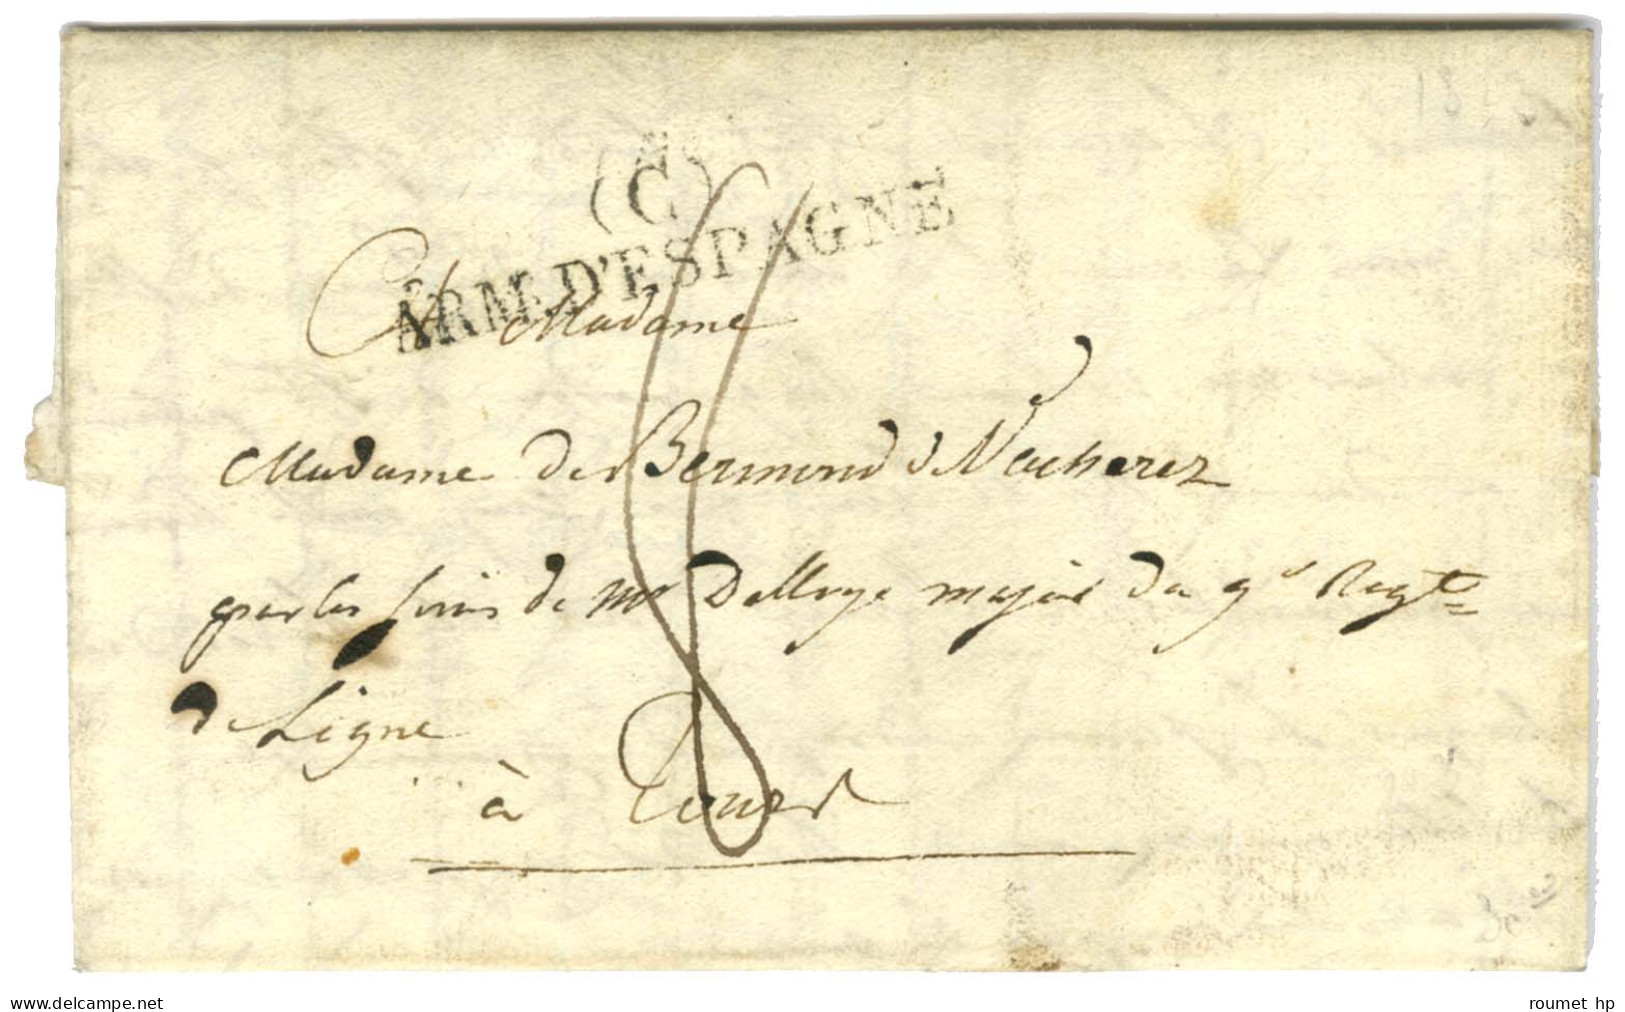 (C)
ARM. D'ESPAGNE
A Madame
Madame de Bermond
par les soins de Mr Dellroye major du 9e Regt
de Ligne
à Tours
8
www.delcampe.net
roumet hp